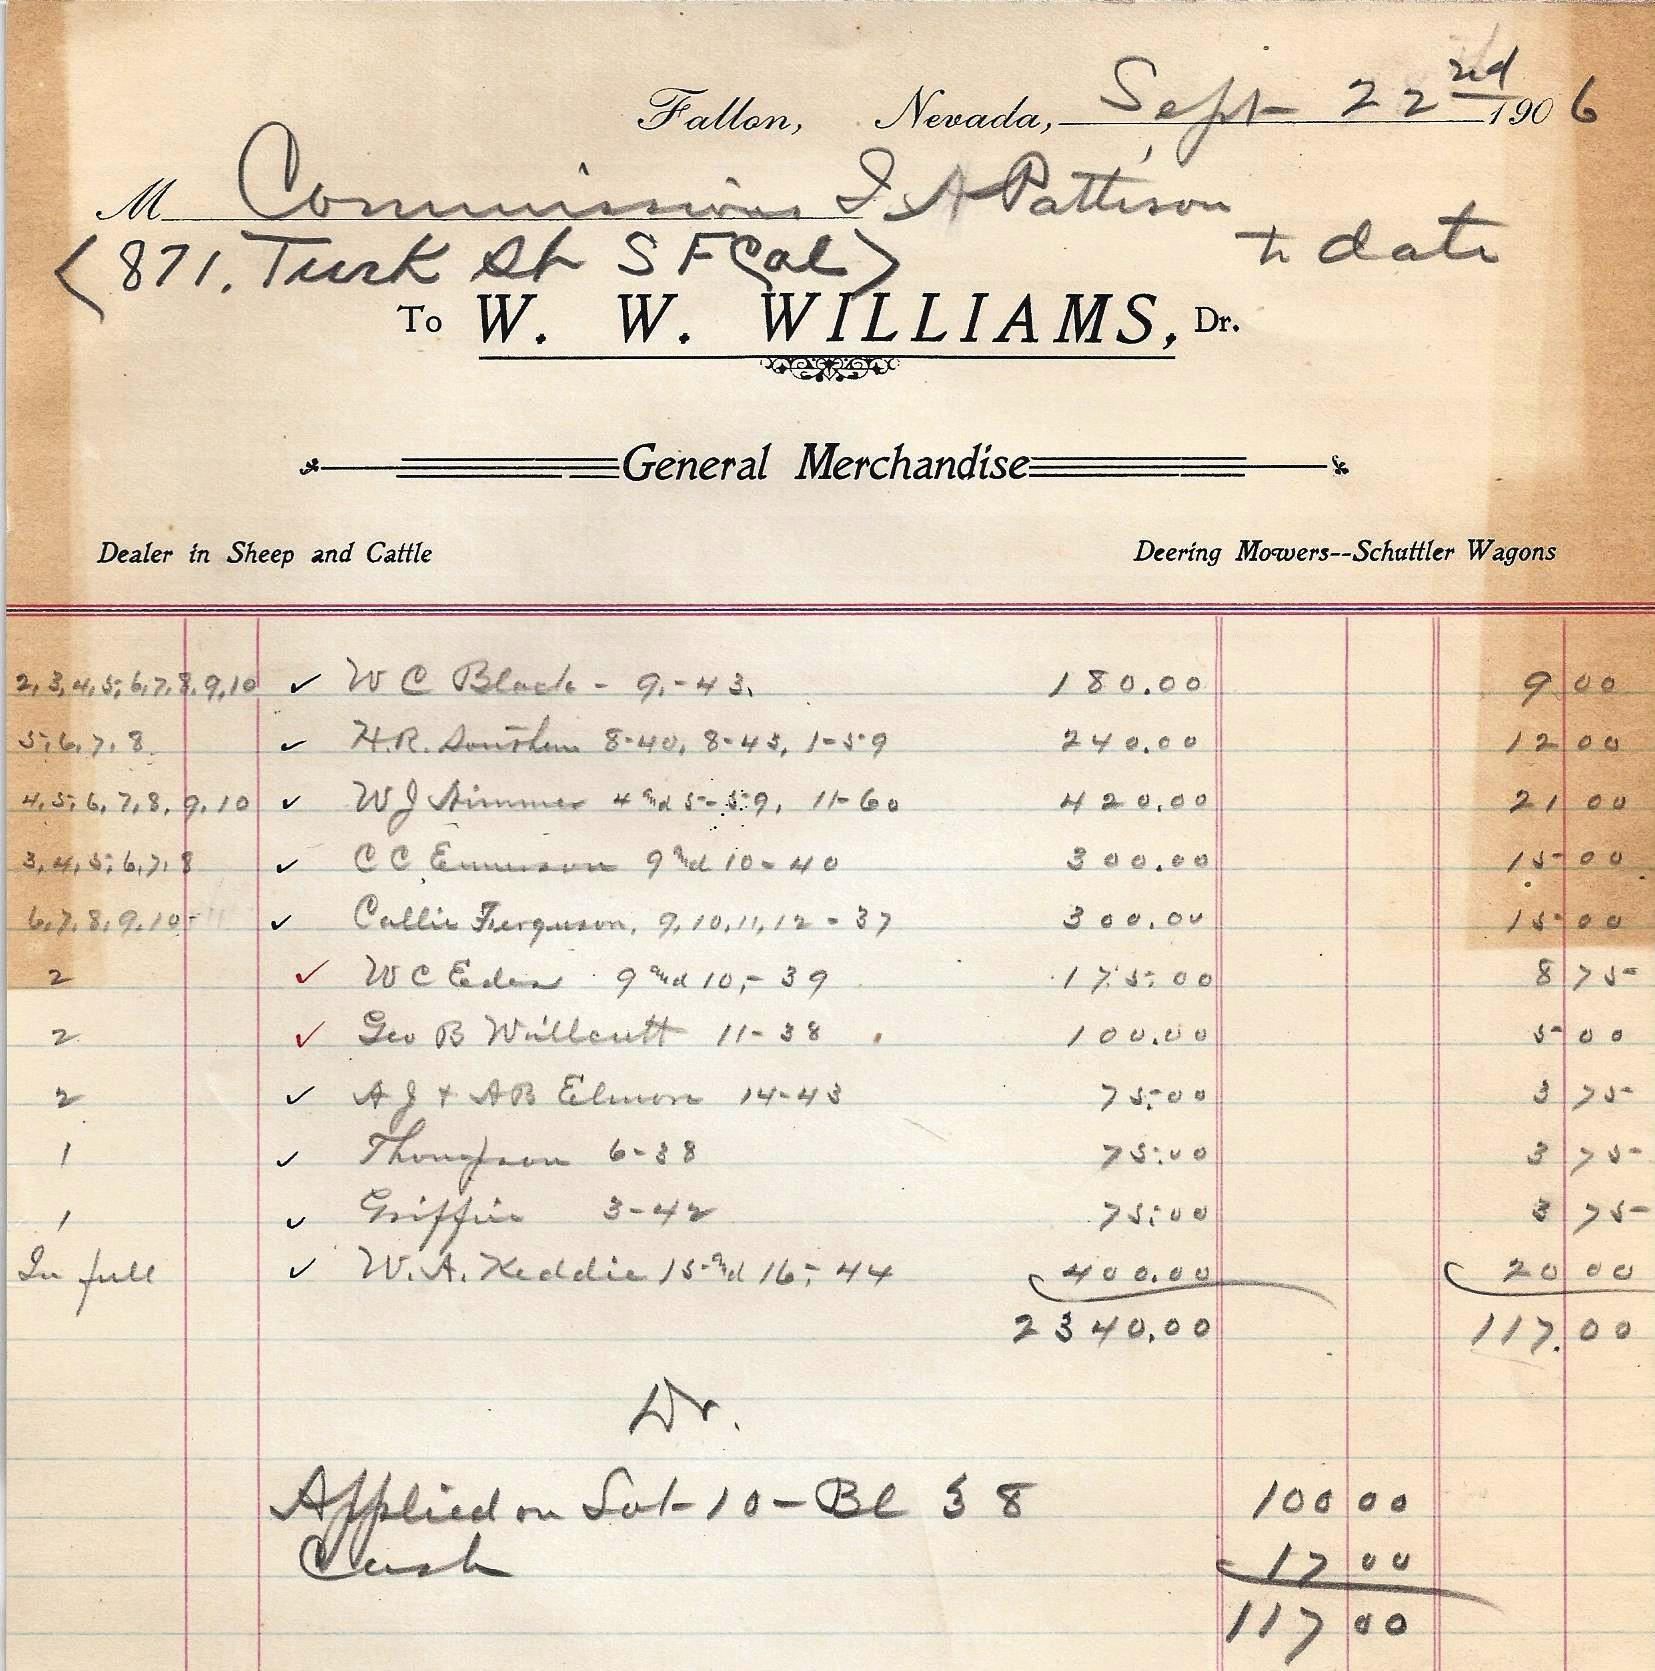 Fallon, Nevada, Sept 22nd 1906
M Commissions I. A Pattison
<871. Turk St S F Cal> to date
To W. W. WILLIAMS, Dr.
General Merchandise
Dealer in Sheep and Cattle Deering Mowers--Schuttler Wagons
2, 3, 4, 5, 6, 7, 8, 9, 10 ✓ W C Black - 9,-43. 180.00 9 00
5, 6, 7, 8 ✓ H.R. 8-40, 8-45, 1-59 240.00 12 00
4, 5, 6, 7, 8, 9, 10 ✓ W J 4 and 5-59, 11-60 420.00 21 00
3, 4, 5, 6, 7, 8 ✓ C C Emerson 9 and 10-40 300.00 15 00
6, 7, 8, 9, 10 ✓ Callie Ferguson, 9, 10, 11, 12 - 37 300.00 15 00
2 ✓ W C Eden 9 and 10,- 39 175.00 8 75
2 ✓ Geo B Willcutt 11-38 100.00 5 00
2 ✓ A J + A B Elmore 14-43 75.00 3 75
1 ✓ Thompson 6-38 75.00 3 75
1 ✓ Griffin 3-42 75.00 3 75
In full ✓ W. A. Keddie 15 and 16,- 44 400.00 20 00
2340.00 117.00
Dr.
Applied on Lot-10-Bl 38 100 00
Cash 17 00
117 00